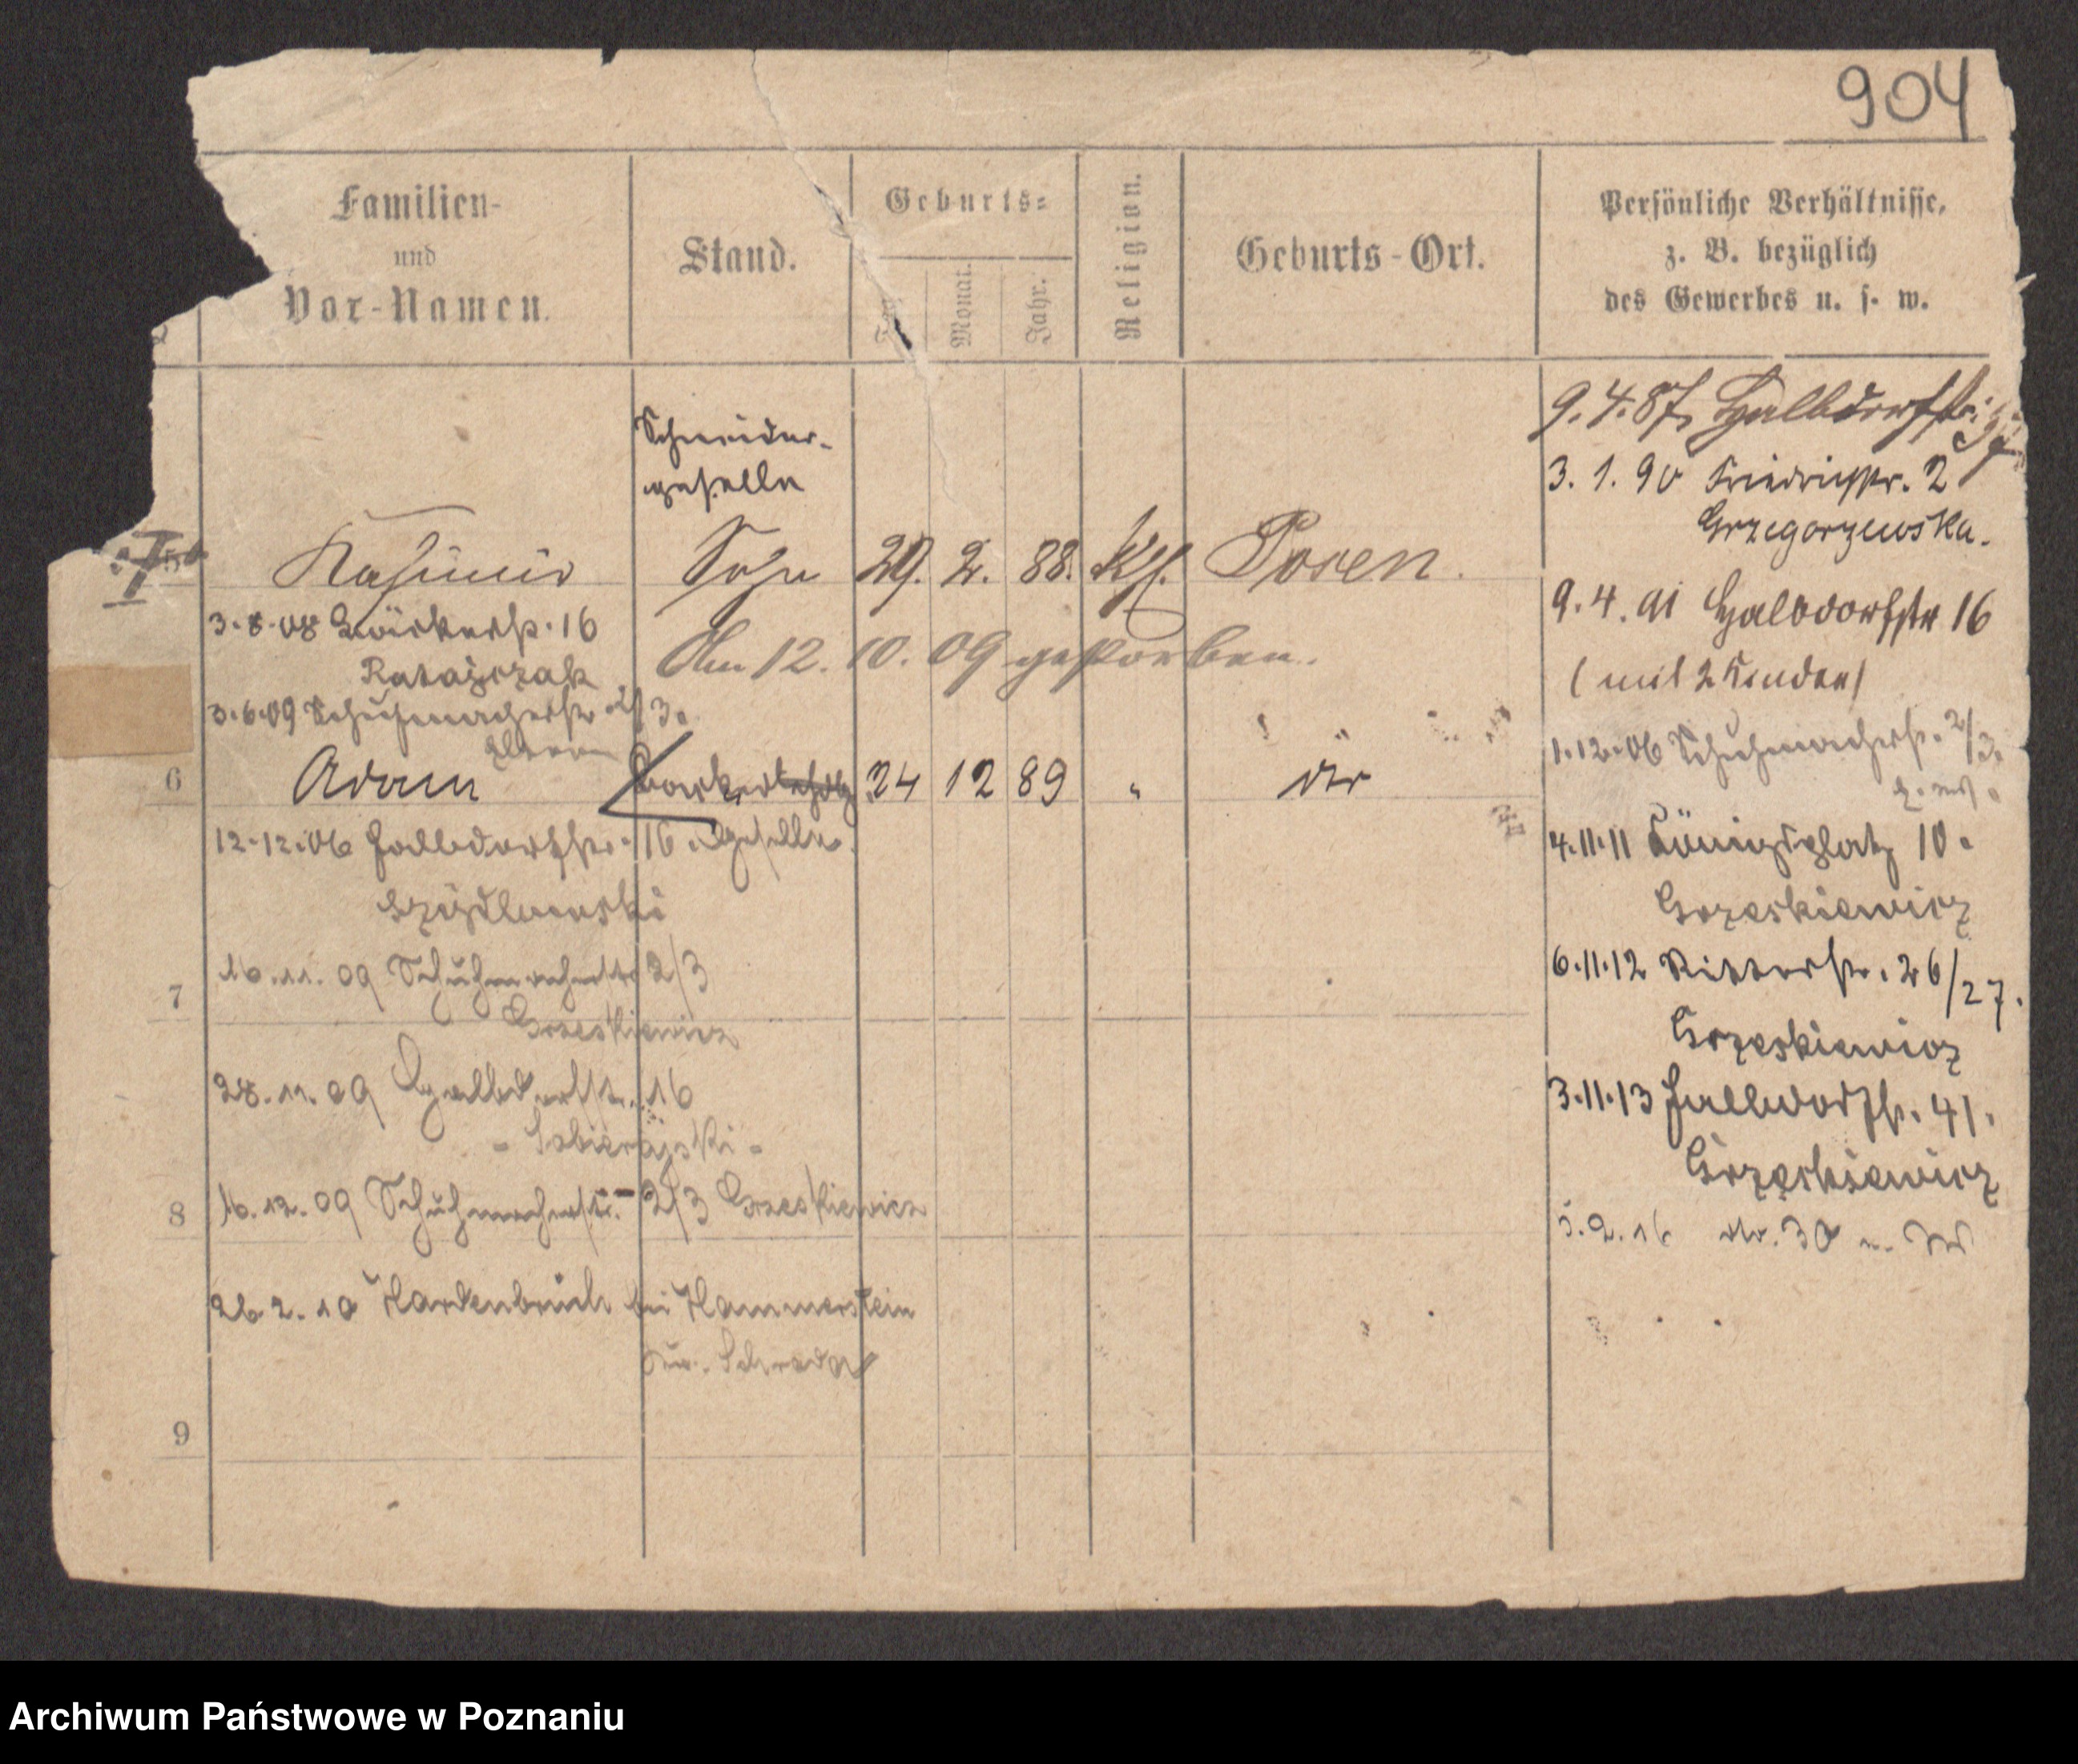 904
Familien-
und
Vor-Namen.
Stand.
Geburts-
Tag.
Monat.
Jahr.
Religion.
Geburts-Ort.
Persönliche Verhältnisse,
z. B. bezüglich
des Gewerbes u. s. w.
Schneider-
geselle
5 Kasimir Sohn 29. 2. 88. Kth. Posen.
3.8.08 Bäckerstr. 16
Ratajczak
Am 12. 10. 09 gestorben.
3.6.09 Schuhmacherstr. 2/3.
Eltern
6 Adam 24 12 89 " dto
geselle
12.12.06 Halbdorfstr. 16.
Szydlewski
7 16.11.09 Schuhmacherstr 2/3
Grzeskiewicz
28.11.09 Halbdorfstr. 16
- Sobierajski -
8 16.12.09 Schuhmacherstr. 2/3 Grzeskiewicz
26.2.10 Hardenbruch bei Hammerstein
9
9.4.87. Halbdorfstr.
3. 1. 90 Friedrichstr. 2
Grzegorzewska.
9.4.91 Halbdorfstr 16
(mit 2 Kinder)
1.12.06 Schuhmacherstr. 2/3.
4.11.11 Königsplatz 10.
Grzeskiewicz
6.11.12 Ritterstr. 26/27.
Grzeskiewicz
3.11.13 Halbdorfstr. 41.
Grzeskiewicz
5.2.16 30
Archiwum Państwowe w Poznaniu